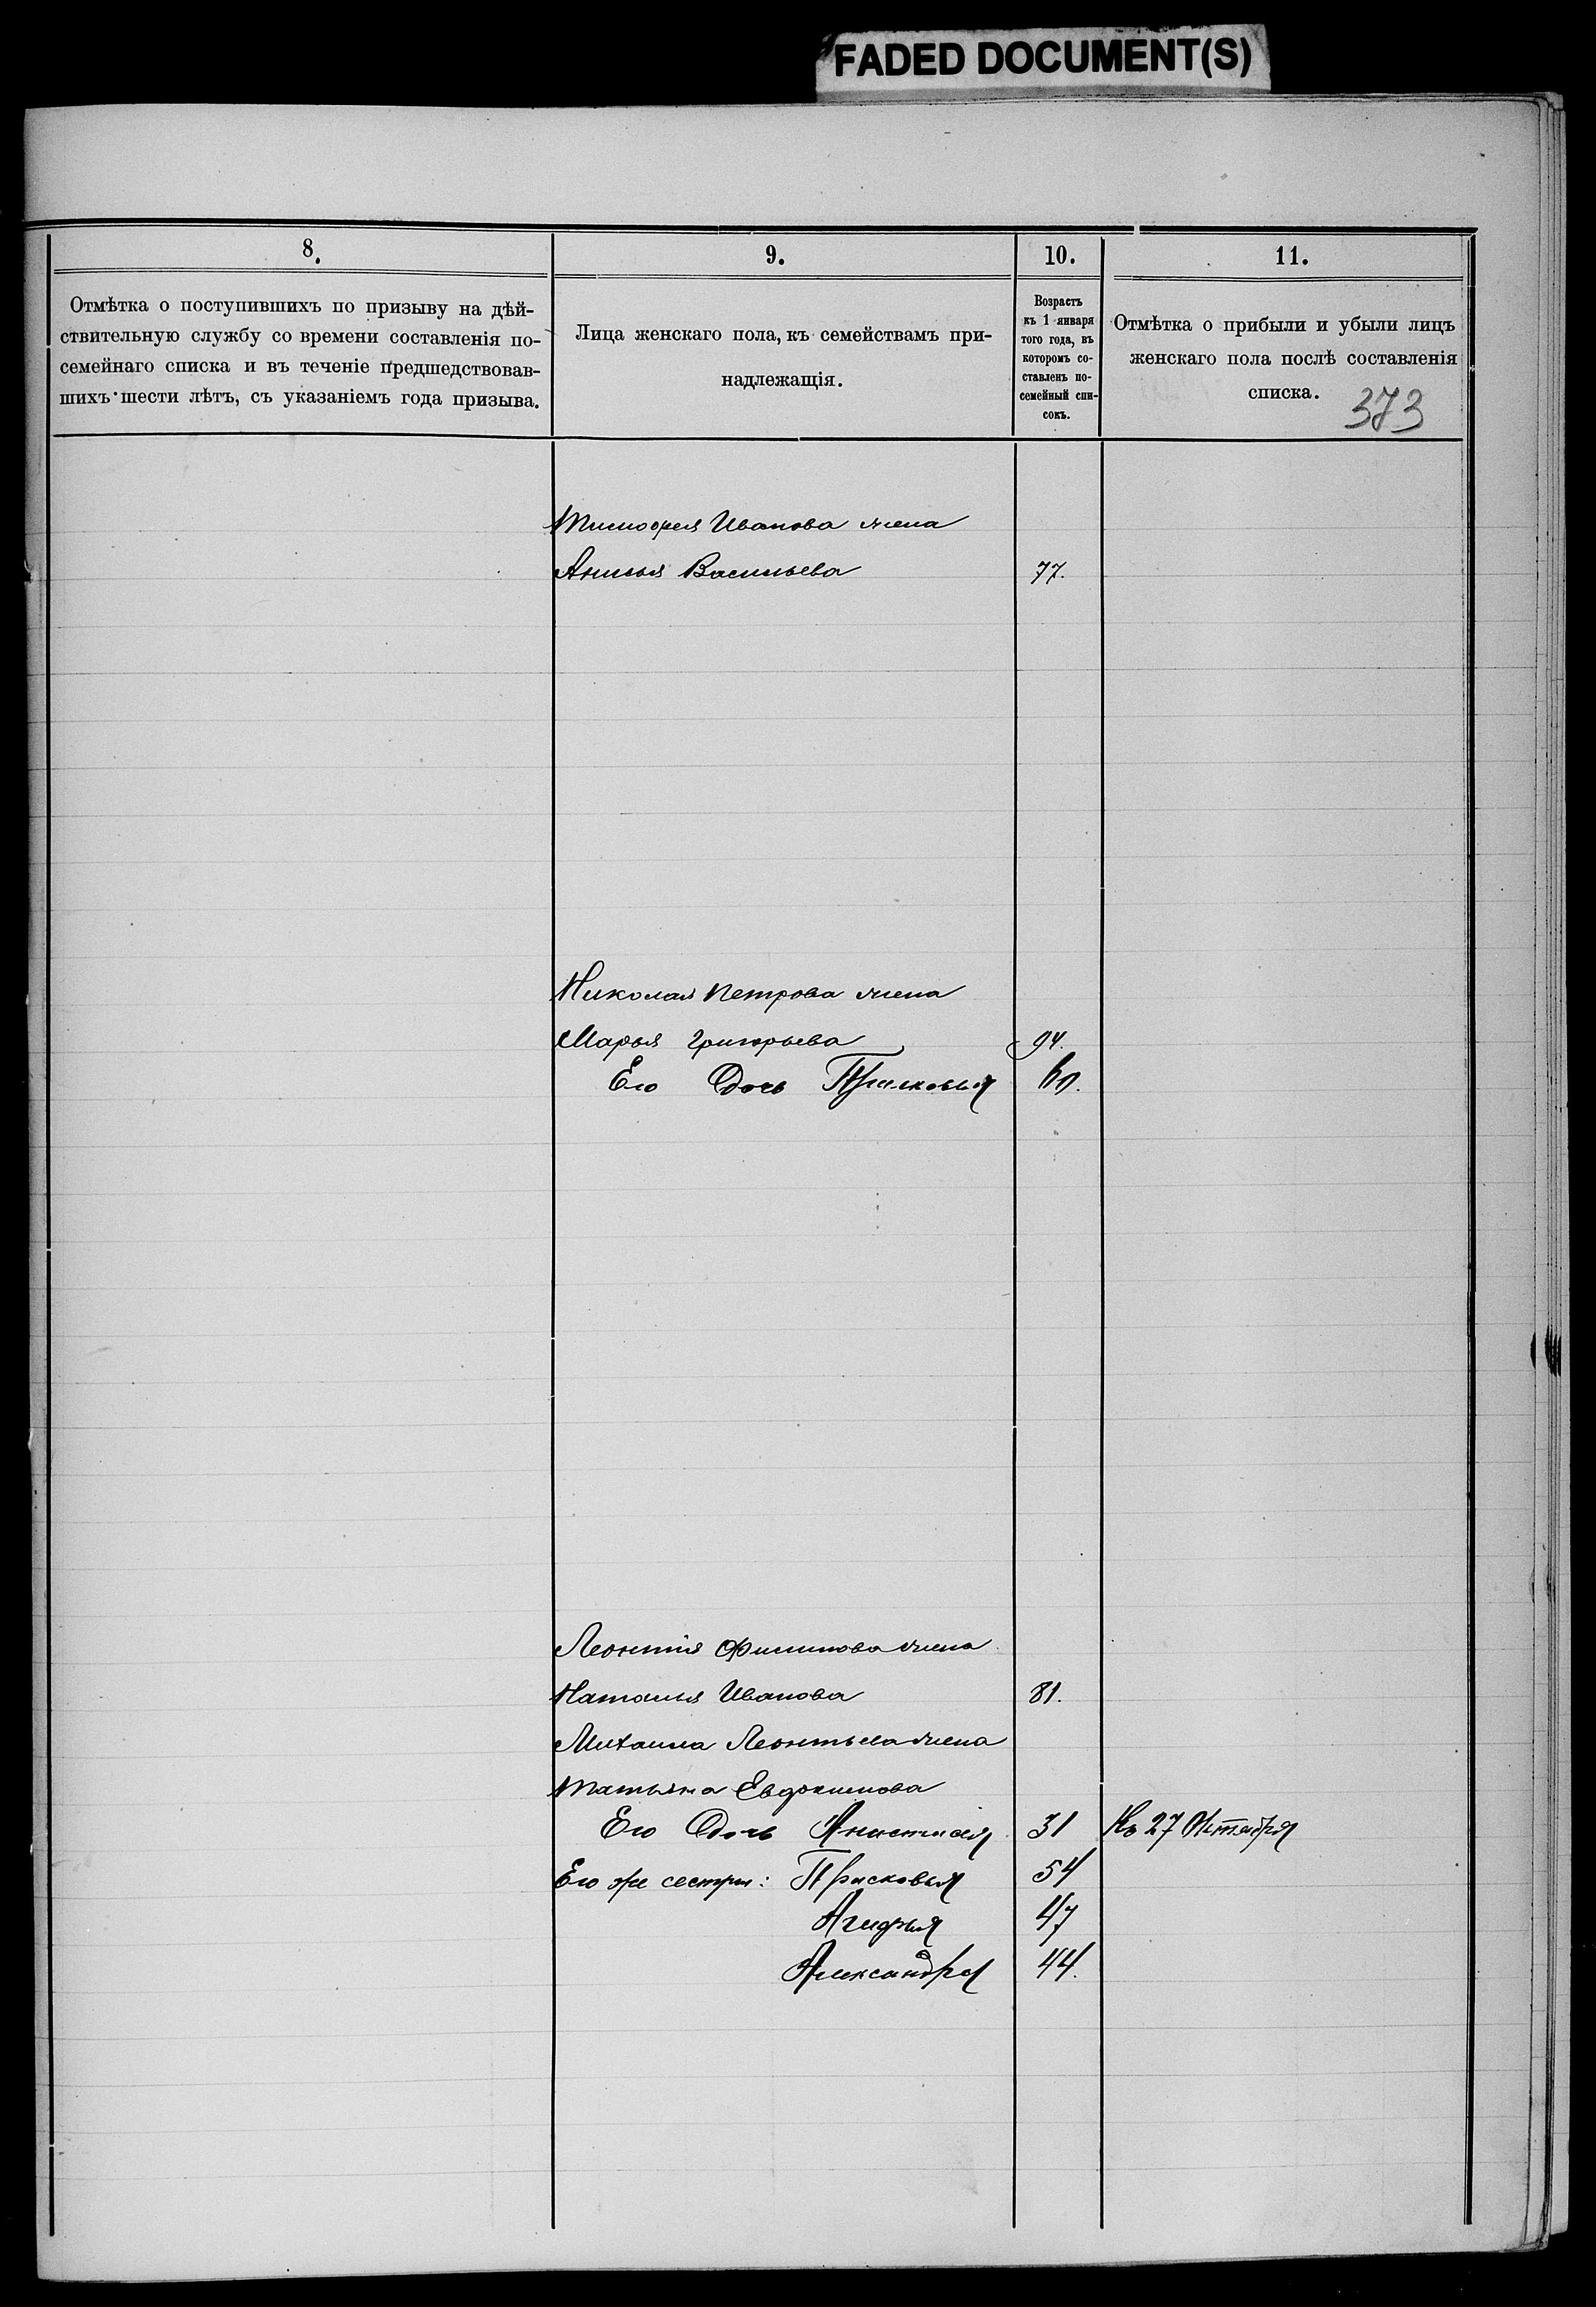 FADED DOCUMENT(S)
8.
Отмѣтка о поступившихъ по призыву на дѣй-
ствительную службу со времени составленія по-
семейнаго списка и въ теченіе предшедствовав-
шихъ шести лѣтъ, съ указаніемъ года призыва.
9.
Лица женскаго пола, къ семействамъ при-
надлежащія.
10.
Возрастъ
къ 1 января
того года, въ
которомъ со-
ставленъ по-
семейный спи-
сокъ.
11.
Отмѣтка о прибыли и убыли лицъ
женскаго пола послѣ составленія
списка.
373
Тимофея Иванова жена
Анисья Васильева 77.
Николая Петрова жена
Марья Григорьева 94.
Его Дочь Прасковья 60.
Леонтія Филипова жена
Наталья Иванова 81.
Михаила Леонтьева жена
Татьяна Евдокимова
Его Дочь Анастасія 31 27 Октября
Его же сестры: Прасковья 54
47
Александра 44.